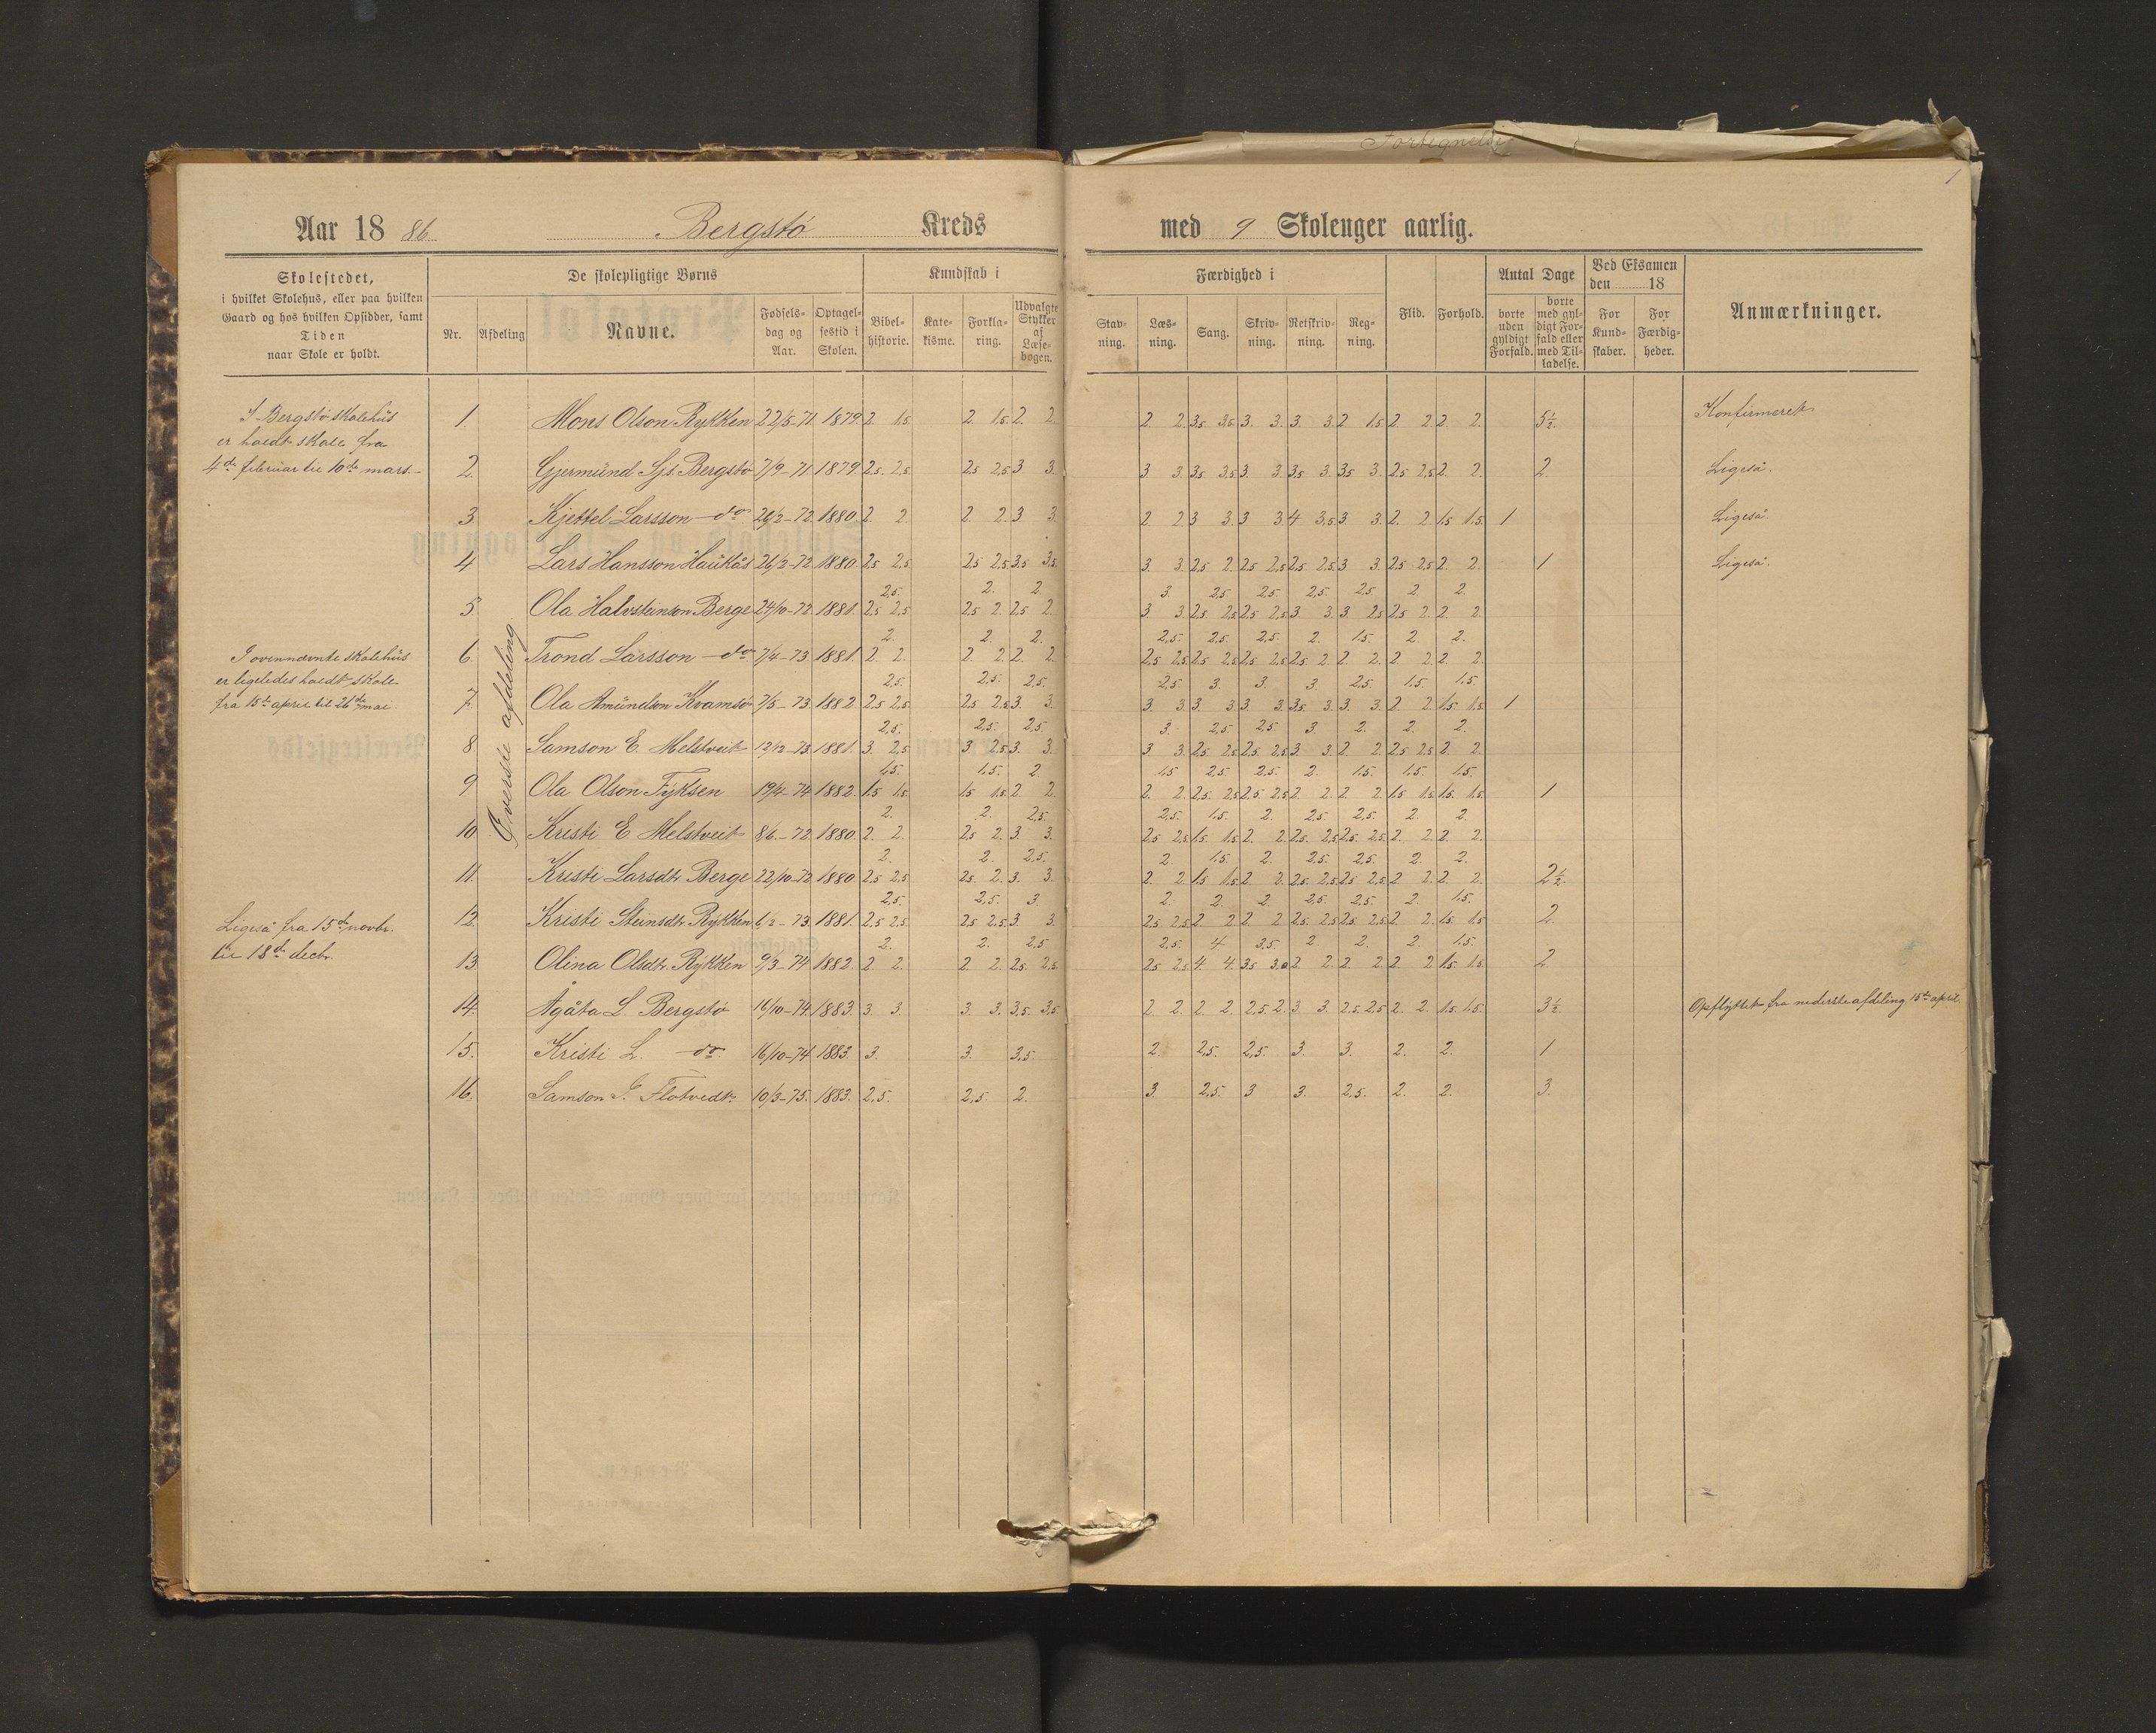 Fortegnelse
1
Aar 1886 Bergstø Kreds med 9 Skolenger aarlig.
Skolestedet,
i hvilket Skolehus, eller paa hvilken
Gaard og hos hvilken Opsidder, samt
Tiden
naar Skole er holdt.
De skolepligtige Børns
Nr.
Afdeling
Navne.
Fødsels-
dag og
Aar.
Optagel-
sestid i
Skolen.
Kundskab i
Bibel-
historie.
Kate-
kisme.
Forkla-
ring.
Udvalgte
Stykker
af
Læse-
bogen.
Færdighed i
Stav-
ning.
Læs-
ning.
Sang.
Skriv-
ning.
Retskriv-
ning.
Reg-
ning.
Flid.
Forhold.
Antal Dage
borte
uden
gyldigt
Forfald.
borte
med gyl-
digt For-
fald eller
med Til-
ladelse.
Ved Eksamen
den 18
For
Kund-
skaber.
For
Færdig-
heder.
Anmærkninger.
I Bergstø skolehus
er holdt skole fra
4de februar til 10de mars.
I ovennævnte skolehus
er ligeledes holdt skole
fra 15de april til 26de mai
Ligeså fra 15de novbr.
til 18de decbr.
Øverste afdeling
1. Mons Olson Rykken 22/5-71. 1879. 2. 1.5. 2. 1.5. 2. 2. 2 2. 3.5 3.5 3. 3. 3. 3. 2 1.5 2 2. 2. 2. 5½ Konfirmeret
2. Gjermund Sjs. Bergstø 7/9-71. 1879 2.5. 2.5 2.5 2.5 3 3. 3 3 3.5 3.5 3. 3 3.5 3. 3.5 3. 2.5 2.5 2. 2. 2 Ligeså.
3 Kjettel Larsson do 26/2-72. 1880. 2. 2. 2. 2. 3 3. 2 2 3 3. 3 3. 4 3.5 3 3. 2. 2. 1.5 1.5. 1 Ligeså.
4 Lars Hansson Haukås 26/2-72 1880. 2.5 2.5 2.5 2.5 3.5 3.5. 3 3. 2.5 2. 2.5 2.5 2.5 2.5 3 3. 2.5 2.5 2. 2. 1 Ligeså.
2.5. 2. 2. 3. 2.5. 2.5. 2.5. 2.5 2. 2.
5 Ola Halvsteinson Berge 24/10-72 1881. 2.5 2.5 2.5 2. 2.5 2. 3 3. 2.5 2.5 2.5 2.5 3 3. 3 2.5 2.5 2. 2 2.
2. 2. 2. 2.5. 2.5. 2.5. 2. 1.5. 2. 2.
6. Trond Larsson do 7/4-73. 1881. 2. 2. 2 2. 2. 2. 2.5 2.5 2.5 2.5 2.5 2.5 2.5 2. 2 2. 2 2. 2. 2.
2.5. 2.5. 2.5. 2.5. 3. 3. 3. 2.5. 1.5. 1.5.
7. Ola Amundson Kvamsø 7/5-73. 1882 2.5 2.5. 2.5 2.5 3 3. 3 3 3. 3 3 3. 3.5. 3. 3. 3. 2 2. 1.5 1.5. 1
2.5. 2.5. 2.5. 3. 2.5. 2.5 3. 2. 2. 2.
8 Samson E. Melstveit 12/12-73. 1881. 3. 2.5 3. 2.5 3. 3. 3 3. 2.5 2.5 2.5 2.5 3. 3. 2 2. 2.5 2.5 2 2.
1.5. 1.5. 2 1.5 2.5. 2.5. 2. 1.5. 1.5. 1.5.
9 Ola Olson Fyksen 19/4-74 1882. 1.5 1.5. 1.5 1.5. 2 2. 2. 2. 2.5. 2.5 2.5 2.5 2 2. 2. 2. 1.5 1.5 1.5. 1.5. 1
2. 2. 2.5. 2.5. 1.5. 2. 2.5. 2.5. 2. 2.
10 Kristi E Melstveit 8/6-72. 1880 2. 2. 2.5 2. 3. 3. 2.5 2.5 1.5 1.5 2. 2. 2.5. 2.5 2.5 2.5. 2. 2. 2 2.
2. 2. 2.5. 2 1.5. 2. 2.5. 2.5. 2. 2.
11. Kristi Larsdtr. Berge 22/10-72 1880 2.5 2.5 2.5. 2. 3. 3. 2. 2. 1.5 1.5 2 2. 2.5. 2.5 2.5 2.5 2 2. 2. 2. 2½.
2.5. 2.5. 3. 2 2. 2. 2.5. 2.5. 2. 1.5.
12. Kristi Steinsdtr. Rykken 6/2-73. 1881. 2.5 2.5. 2.5 2.5 3 3. 2.5 2.5 2. 2 2. 2 2.5. 2.5 2.5 2.5 2. 2. 1.5 1.5 2.
2. 2. 2.5 2.5. 4. 3.5. 2 2. 2 1.5.
13. Olina Olsdtr. Rykken 9/3-74 1882. 2 2. 2 2. 2.5 2.5 2.5 2.5 4. 4. 3.5 3. 2 2. 2. 2 2. 2 1.5 1.5. 2
14. Ågåta L. Bergstø 16/10-74. 1883. 3. 3. 3. 3. 3.5 3.5 2. 2 2. 2. 2.5. 2. 3 3. 2.5 2.5 2. 2. 1.5. 1.5. 3½. Opflyttet fra nederste afdeling 15de april.
15. Kristi L. do 16/10-74 1883. 3. 3. 3.5. 2. 2.5. 2.5. 3. 3. 2. 2. 1
16. Samson G. Flotvedt 10/3-75. 1883. 2.5. 2.5. 2. 3. 2.5. 3 3. 2.5. 2. 2. 3.